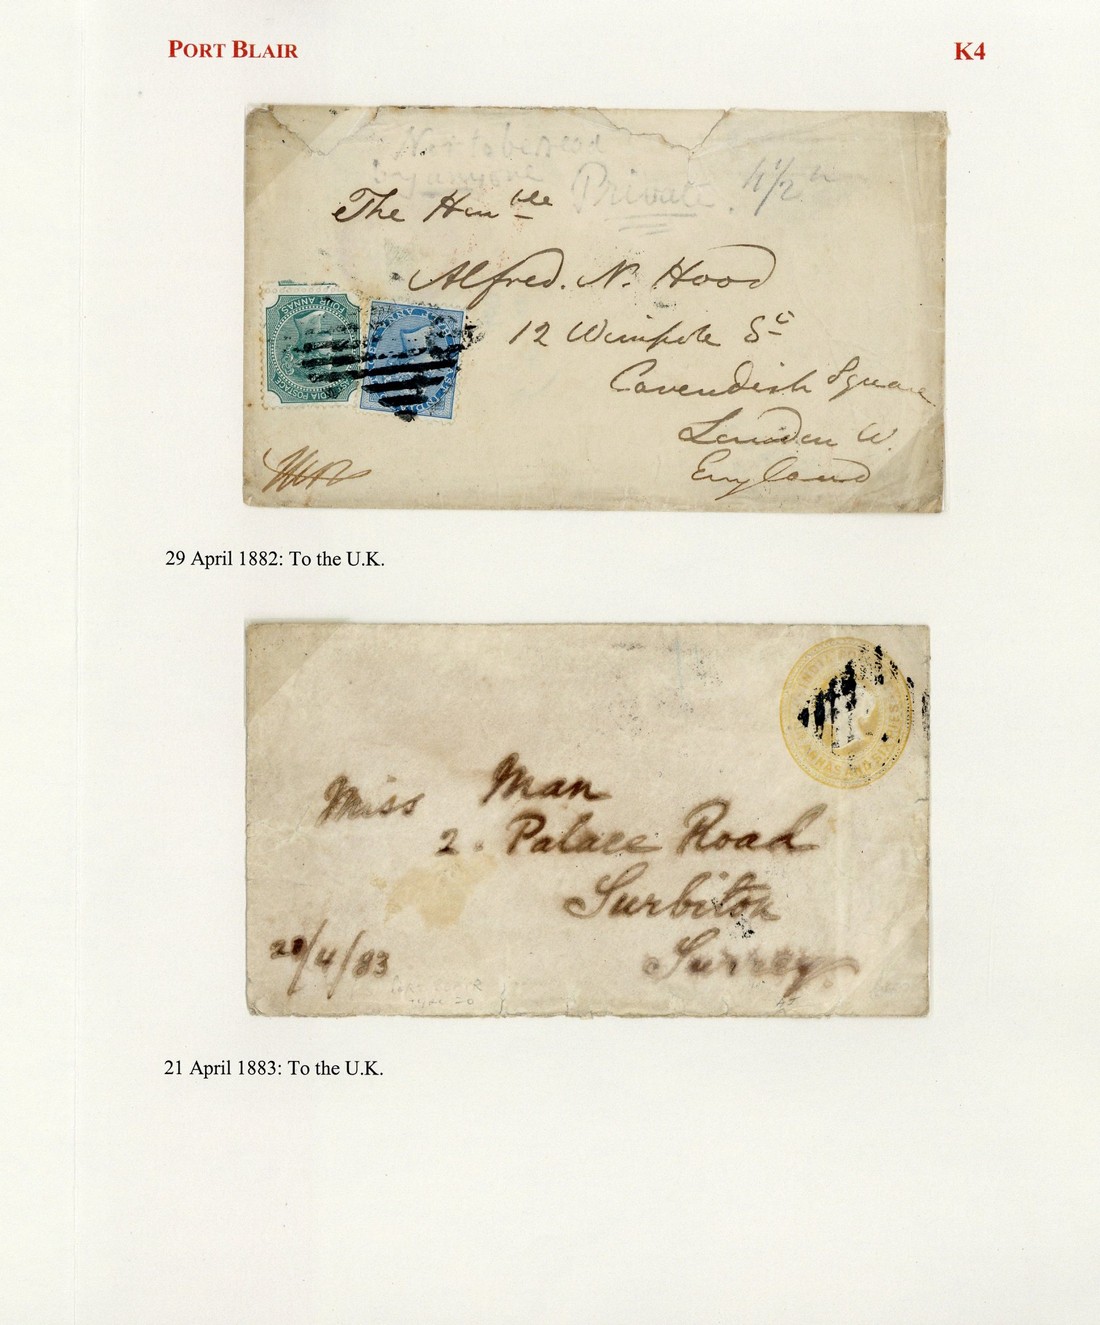 PORT BLAIR
K4
Not to be read
by anyone
Private. 4½
The Honble
Alfred. N. Hood
12 Wimpole St
Cavendish Square
London W.
England
FOUR ANNAS
EAST INDIA POSTAGE
29 April 1882: To the U.K.
ANNAS AND
Miss Man
2. Palace Road
Surbiton
Surrey.
/4/83
21 April 1883: To the U.K.